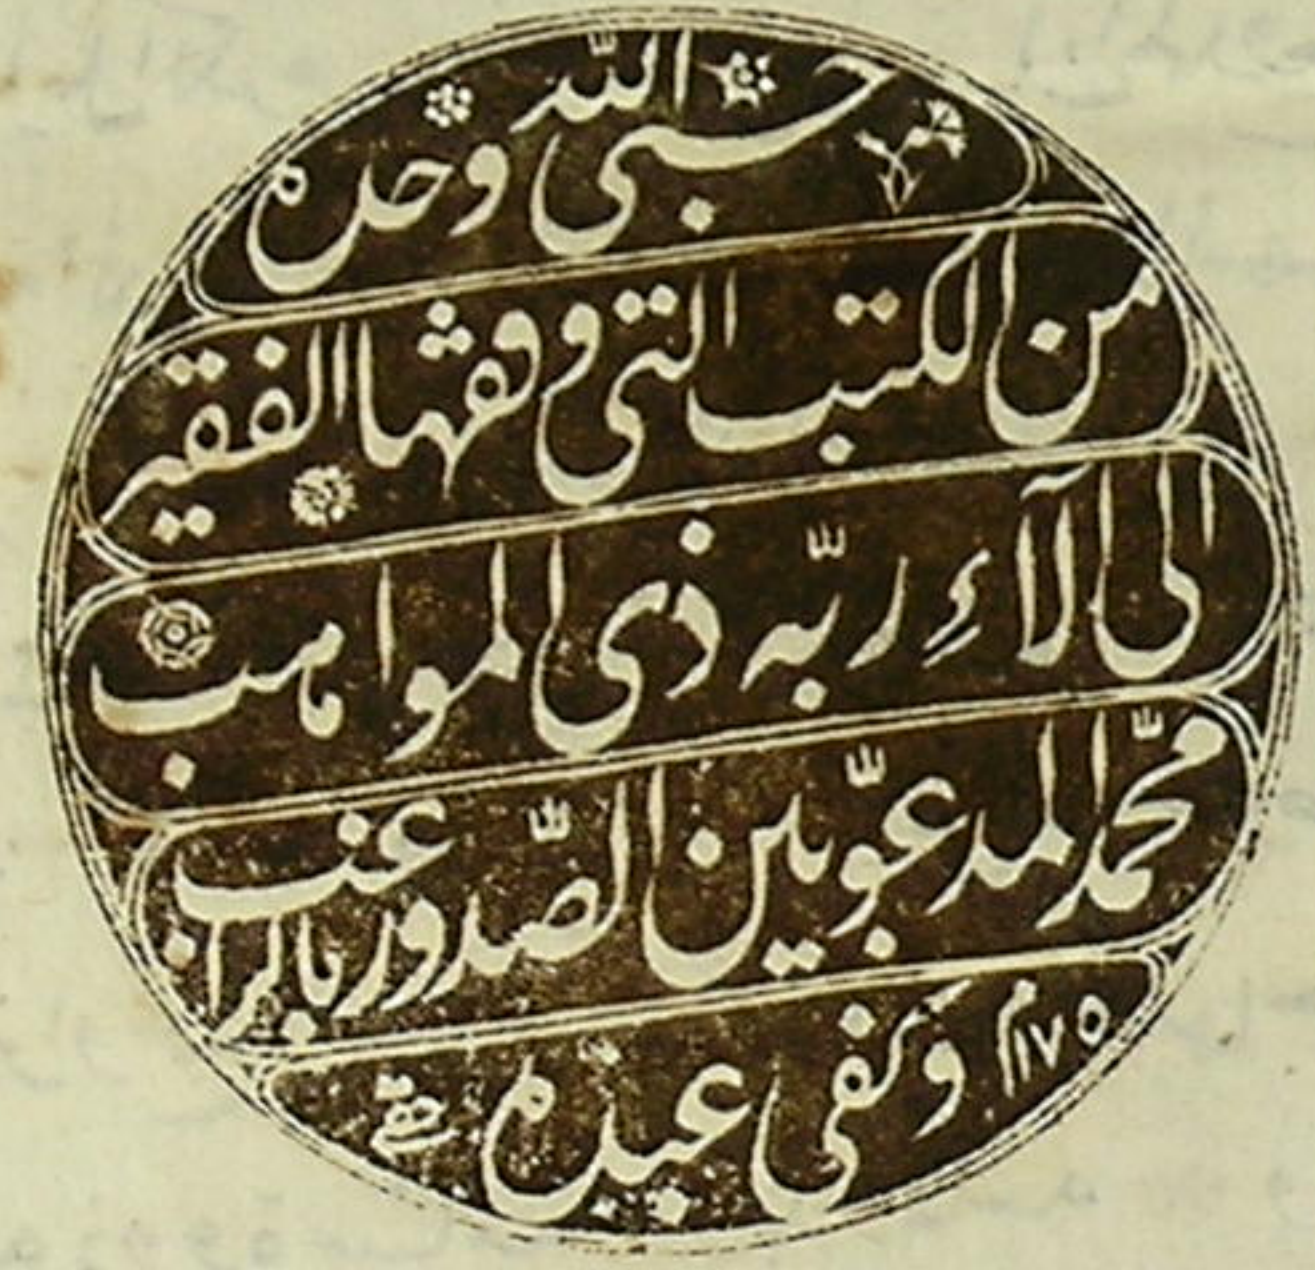 حسبی الله وحده
من الکتب التی وقفها الفقیر
الی آلآءِ ربّه ذی المواهب
محمّد المدعوّ بین الصّدور بالراغب
وکفی عبده ١١٧٥